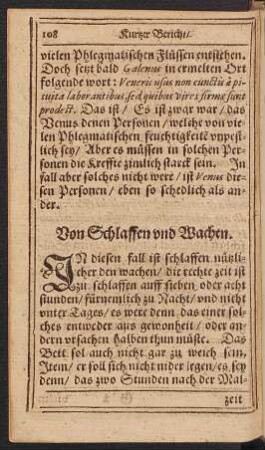 108 Kurtzer Bericht/
vielen Phlegmatischen Flüssen entstehen.
Doch setzt bald Galenus in ermelten Ort
folgende wort: Veneris usus non cunctis à pi-
tuita laborantibus, sed quibus vires firmæ sunt
prodest. Das ist / Es ist zwar war / das
Venus denen Personen / welche von vie-
len Phlegmatischen feuchtigkeitē vnpest-
lich sey / Aber es müssen in solchen Per-
sonen die Kreffte zimlich starck sein. In
fall aber solches nicht wert / ist Venus die-
sen Personen / eben so schedlich als an-
der.
Von Schlaffen vnd Wachen.
IN diesen fall ist schlaffen nützli-
cher den wachen / die rechte zeit ist
zu schlaffen auff sieben oder acht
stunden / fürnemlich zu Nacht / vnd nicht
vnter Tages / es were denn das einer sol-
ches entweder aus gewonheit / oder an-
dern vrsachen halben thun müste. Das
Bett sol auch nicht gar zu weich sein,
Item / er soll sich nicht nider legen / es sey
denn / das zwo Stunden nach der Mal-
zeit